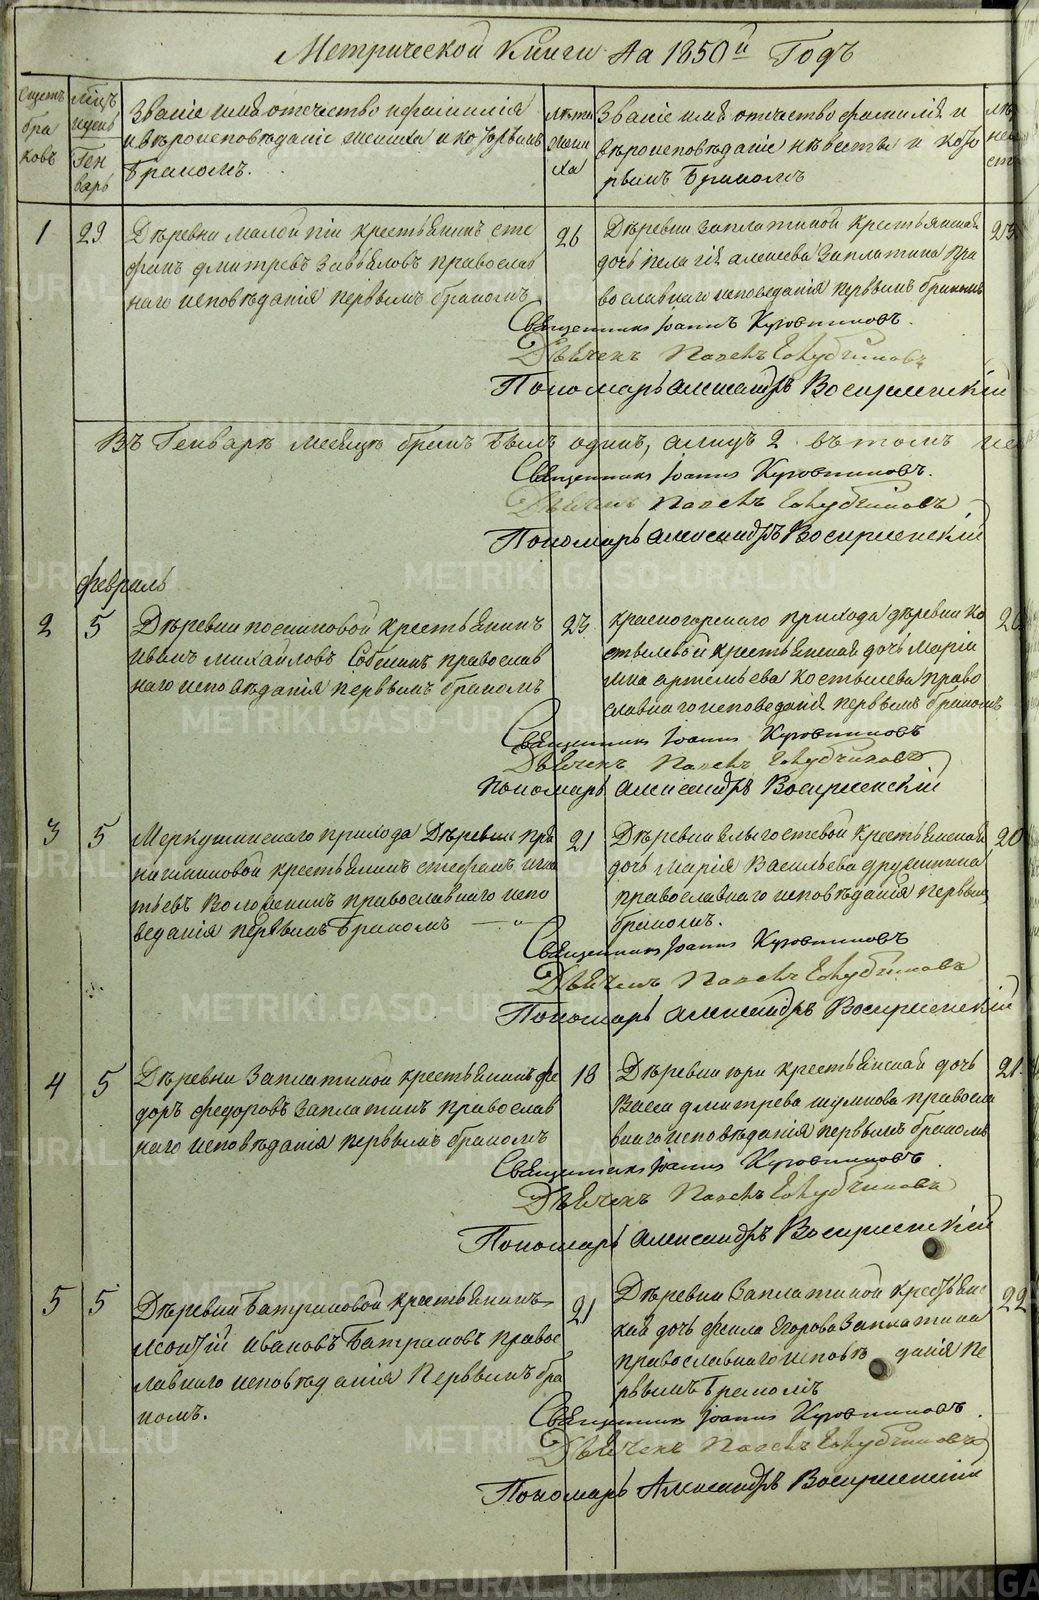 Метрической Книги На 1850й Годъ
Счетъ браковъ
Мѣцъ и день
Генварь
Званіе имя отечество и фамилія
и вѣроисповѣданіе жениха и которымъ
бракомъ.
Лѣта жениха
Званіе имя отчество фамилія и
вѣроисповѣданіе невѣсты и кото
рымъ бракомъ
1
29
Деревни Малой Юи крестьянинъ сте
фанъ дмитревъ Завьяловъ православ
наго исповѣданія первымъ бракомъ
26
Деревни Заплатиной крестьянская
дочь пелагія алексеева Заплатина пра
вославнаго исповеданія первымъ бракомъ
23
Священникъ Іоаннъ Кузовниковъ.
Дьячекъ Павелъ Голубчиковъ
Пономарь александръ Воскресенскій
Въ Генваре месяце бракъ былъ одинъ, а лицъ 2 въ томъ
Священникъ Іоаннъ Кузовниковъ.
Дьячекъ Павелъ Голубчиковъ
Пономарь александръ Воскресенскій
февраль
2
5
Деревни посниковой крестьянинъ
иванъ михайловъ Собенинъ православ
наго исповѣданія первымъ бракомъ
23
красногорскаго прихода деревни Ко
стылевой крестьянская дочь Марія
на артемьева Костылева право
славнаго исповеданія первымъ бракомъ
Священникъ Іоаннъ Кузовниковъ
Дьячекъ Павелъ Голубчиковъ
пономарь александръ Воскресенскій
3
5
Меркушинскаго прихода Деревни пря
ничниковой крестьянинъ стефанъ игна
тьевъ Волокнинъ православнаго испо
веданія первымъ бракомъ
21
дочь Марія Васильева дружинина
православнаго исповѣданія первымъ
бракомъ.
20
Священникъ Іоаннъ Кузовниковъ
Дьячекъ Павелъ Голубчиковъ
Пономарь александръ Воскресенскій
4
5
Деревни Заплатиной крестьянинъ фе
доръ федоровъ Заплатинъ православ
наго исповѣданія первымъ бракомъ
18
Деревни юри крестьянская дочь
Васса дмитрева шумкова правосла
внаго исповѣданія первымъ бракомъ
21.
Священникъ Іоаннъ Кузовниковъ
Дьячекъ Павелъ Голубчиковъ
Пономарь александръ Воскресенскій
5
5
Деревни Батраковой крестьянинъ
ивановъ Батраковъ правос
лавнаго исповѣданія Первымъ бра
комъ.
21
Деревни Заплатиной крестьянс
кая дочь фекла Егорова Заплатина
православнаго исповѣ данія пе
рвымъ бракомъ
22
Священникъ Іоаннъ Кузовниковъ
Дьячекъ Павелъ Голубчиковъ
Пономарь Александръ Воскресенскій
METRIKI.GASO-URAL.RU